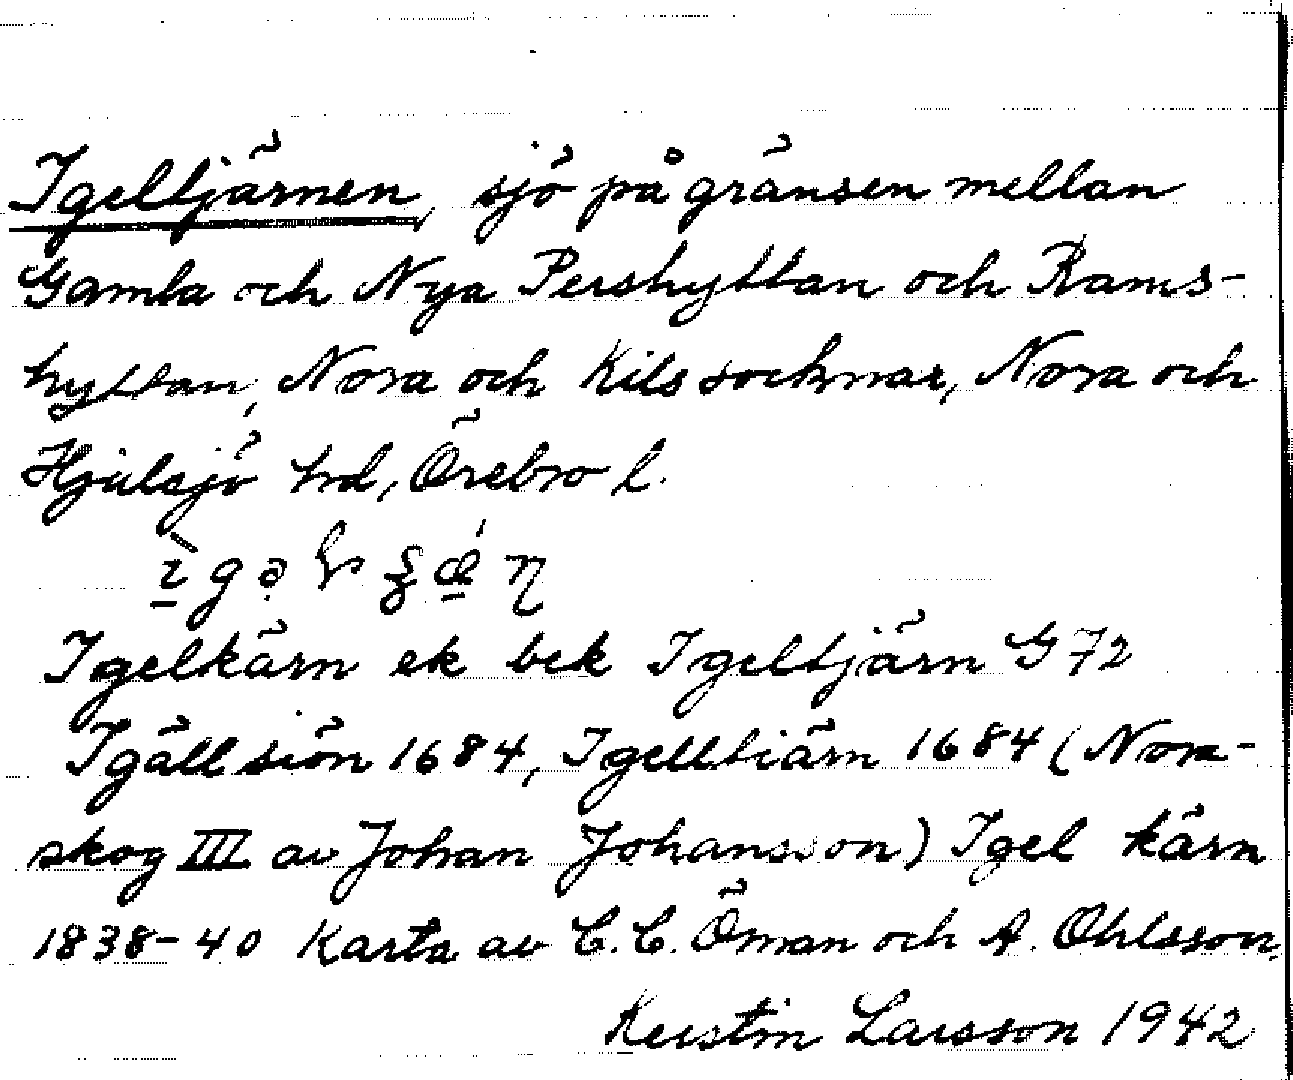 Igeltjärnen, sjö på gränsen mellan
Gamla och Nya Pershyttan och Rams-
hyttan, Nora och Kils socknar, Nora och
Hjulsjö hd, Örebro l.
Igelkärn ek bek Igeltjärn G72
Igällsiön 1684, Igelltiärn 1684 (Nora-
skog III av Johan Johansson) Igel kärn
1838-40 Karta av C.C. Öman och A. Ohlsson.
Kerstin Larsson 1942